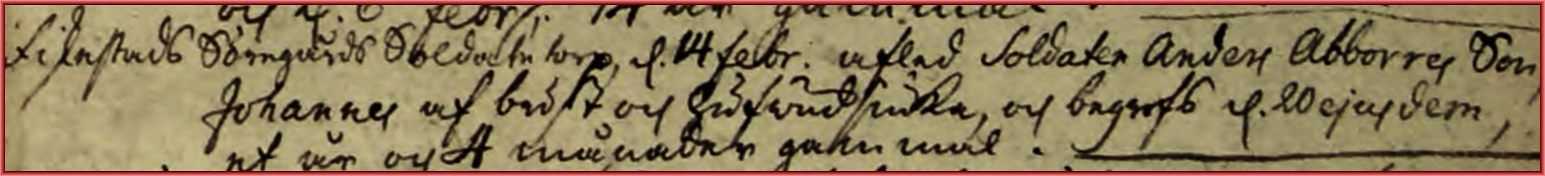 och d. 6 febr. 14 år gammal.
Filnstads Söregårds Soldate torp, d. 14 febr. afled Soldaten Anders Abborres Son
Johannes af bröst och hufwudsiuka, och begrofs d. 20 ejusdem,
et år och 4 månader gammal.